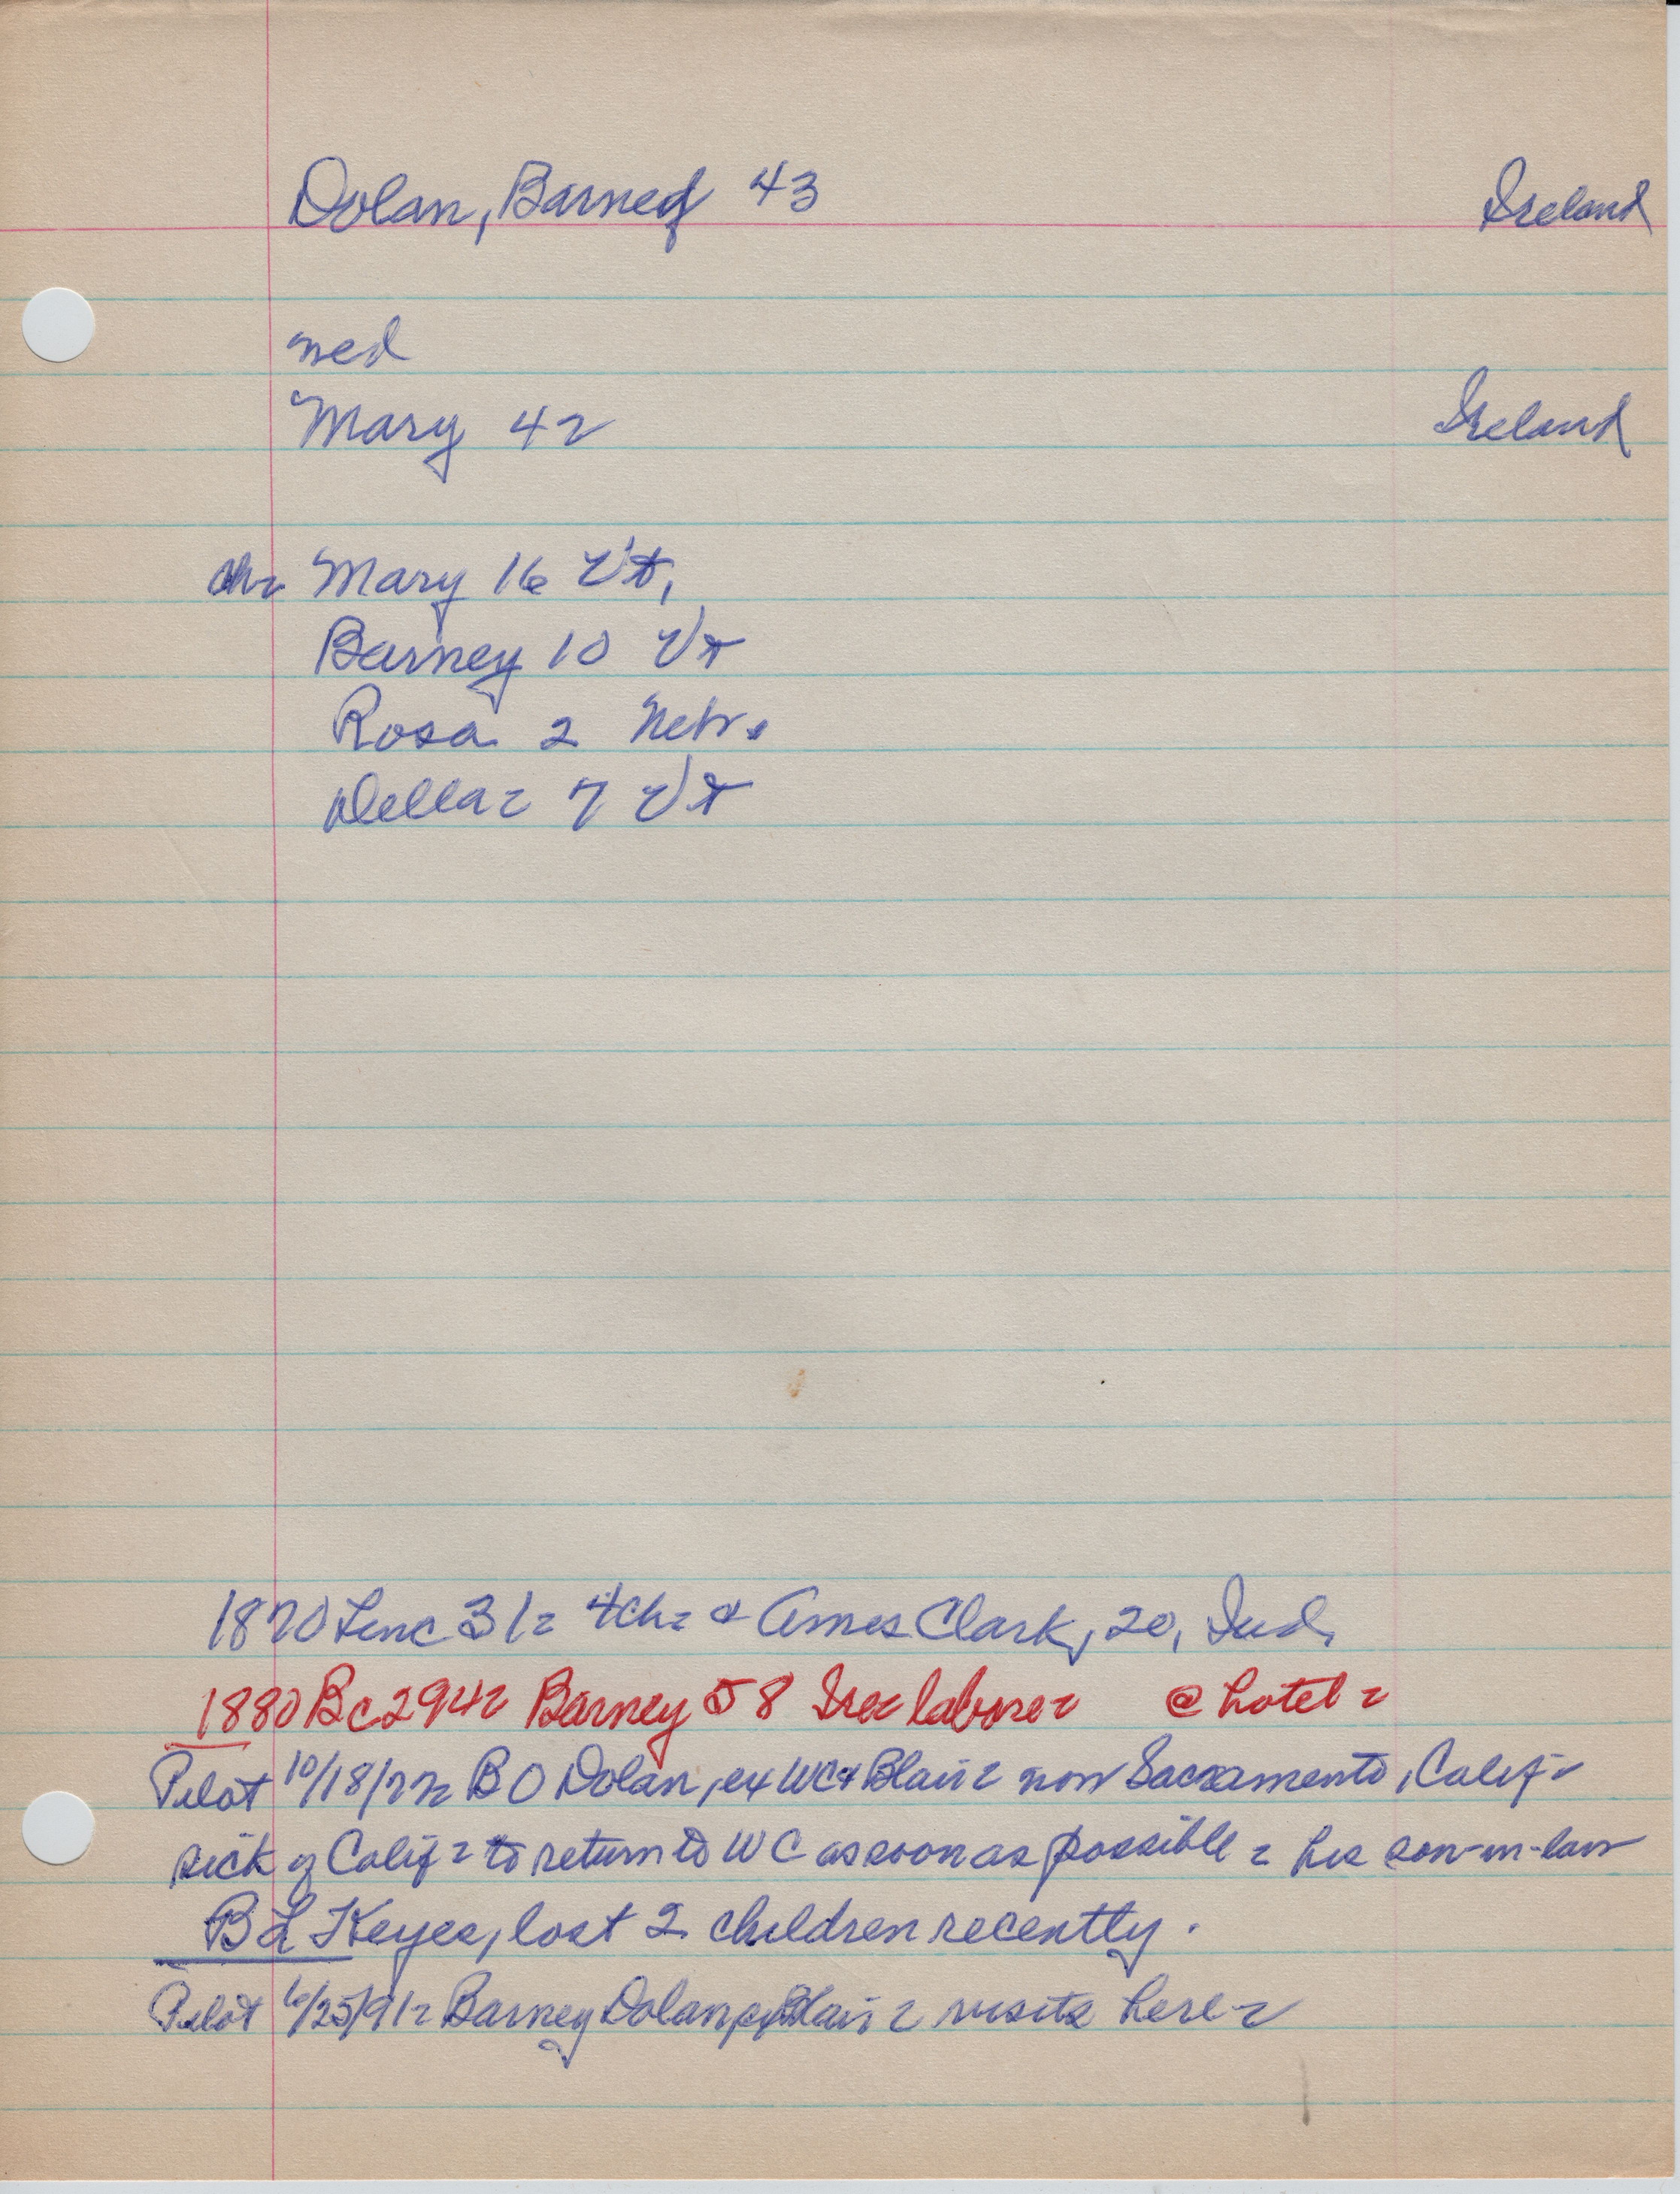 Dolan, Barney 43 Ireland
med
Mary 42 Ireland
ch- Mary 16 Vt,
Barney 10 Vt
Rosa 2 Nebr.
Della- 7 Vt
1870 Linc 31- 4ch- & Amos Clark, 20, Ind.
1880 Bc294- Barney 58 Ire- laborer @ hotel-
Pilot 10/18/77- B O Dolan, ex WC & Blair- now Sacramento, Calif-
sick of Calif- to return to WC as soon as possible- his son-in-law
B L Keyes, lost 2 children recently.
Pilot 6/25/91- Barney Dolan, ex Blair- visits here-